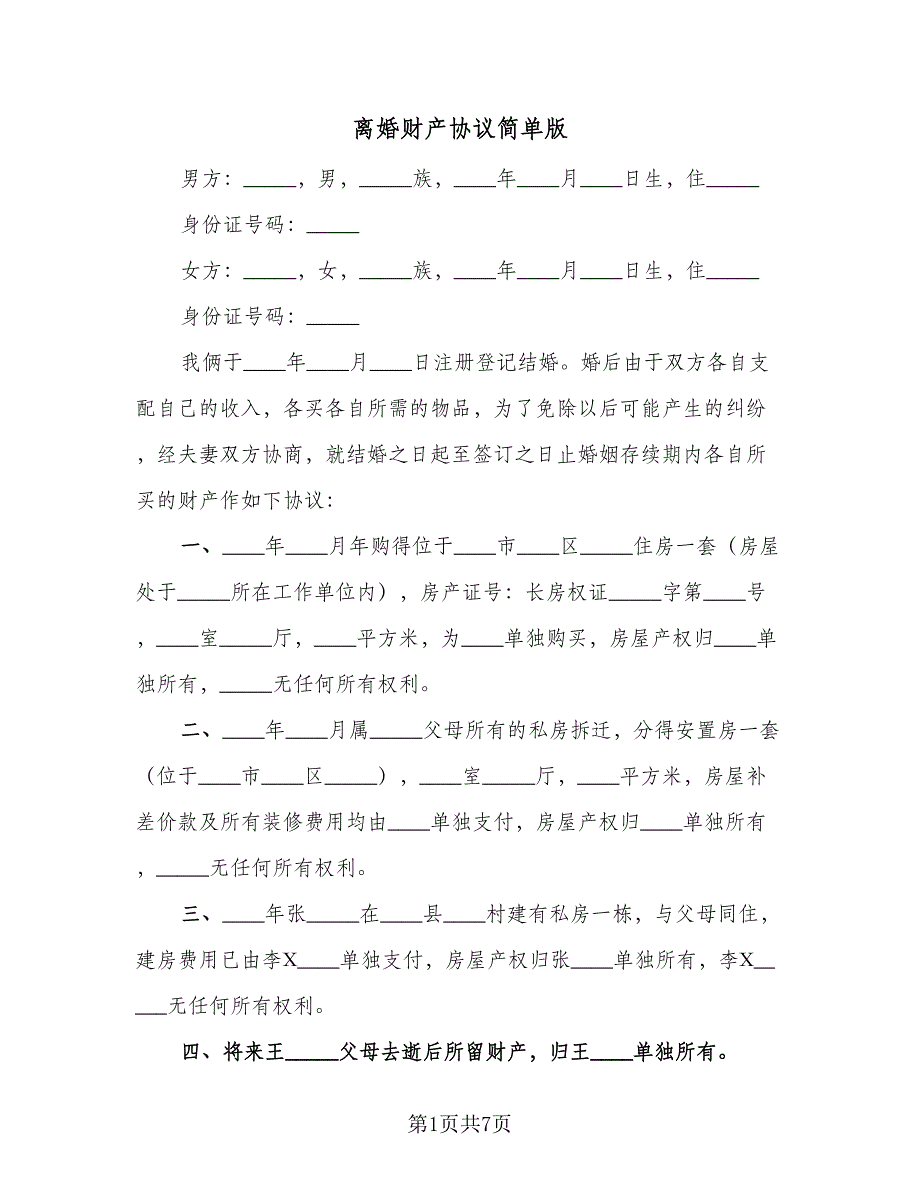 离婚财产协议简单版
男方：_____，男，_____族，____年____月____日生，住_____
身份证号码：_____
女方：_____，女，_____族，____年____月____日生，住_____
身份证号码：_____
我俩于____年____月____日注册登记结婚。婚后由于双方各自支
配自己的收入，各买各自所需的物品，为了免除以后可能产生的纠纷
，经夫妻双方协商，就结婚之日起至签订之日止婚姻存续期内各自所
买的财产作如下协议：
一、____年____月年购得位于____市____区_____住房一套（房屋
处于_____所在工作单位内），房产证号：长房权证_____字第____号
，____室_____厅，____平方米，为____单独购买，房屋产权归____单
独所有，_____无任何所有权利。
二、____年____月属_____父母所有的私房拆迁，分得安置房一套
（位于____市____区_____），____室_____厅，____平方米，房屋补
差价款及所有装修费用均由____单独支付，房屋产权归____单独所有
，_____无任何所有权利。
三、____年张_____在____县____村建有私房一栋，与父母同住，
建房费用已由李X____单独支付，房屋产权归张____单独所有，李X__
___无任何所有权利。
四、将来王_____父母去逝后所留财产，归王____单独所有。
第1页共7页